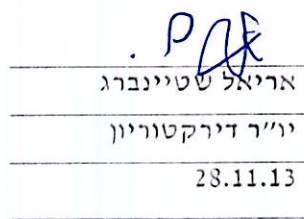 אריאל שטיינברג
יו"ר דירקטוריון
28.11.13